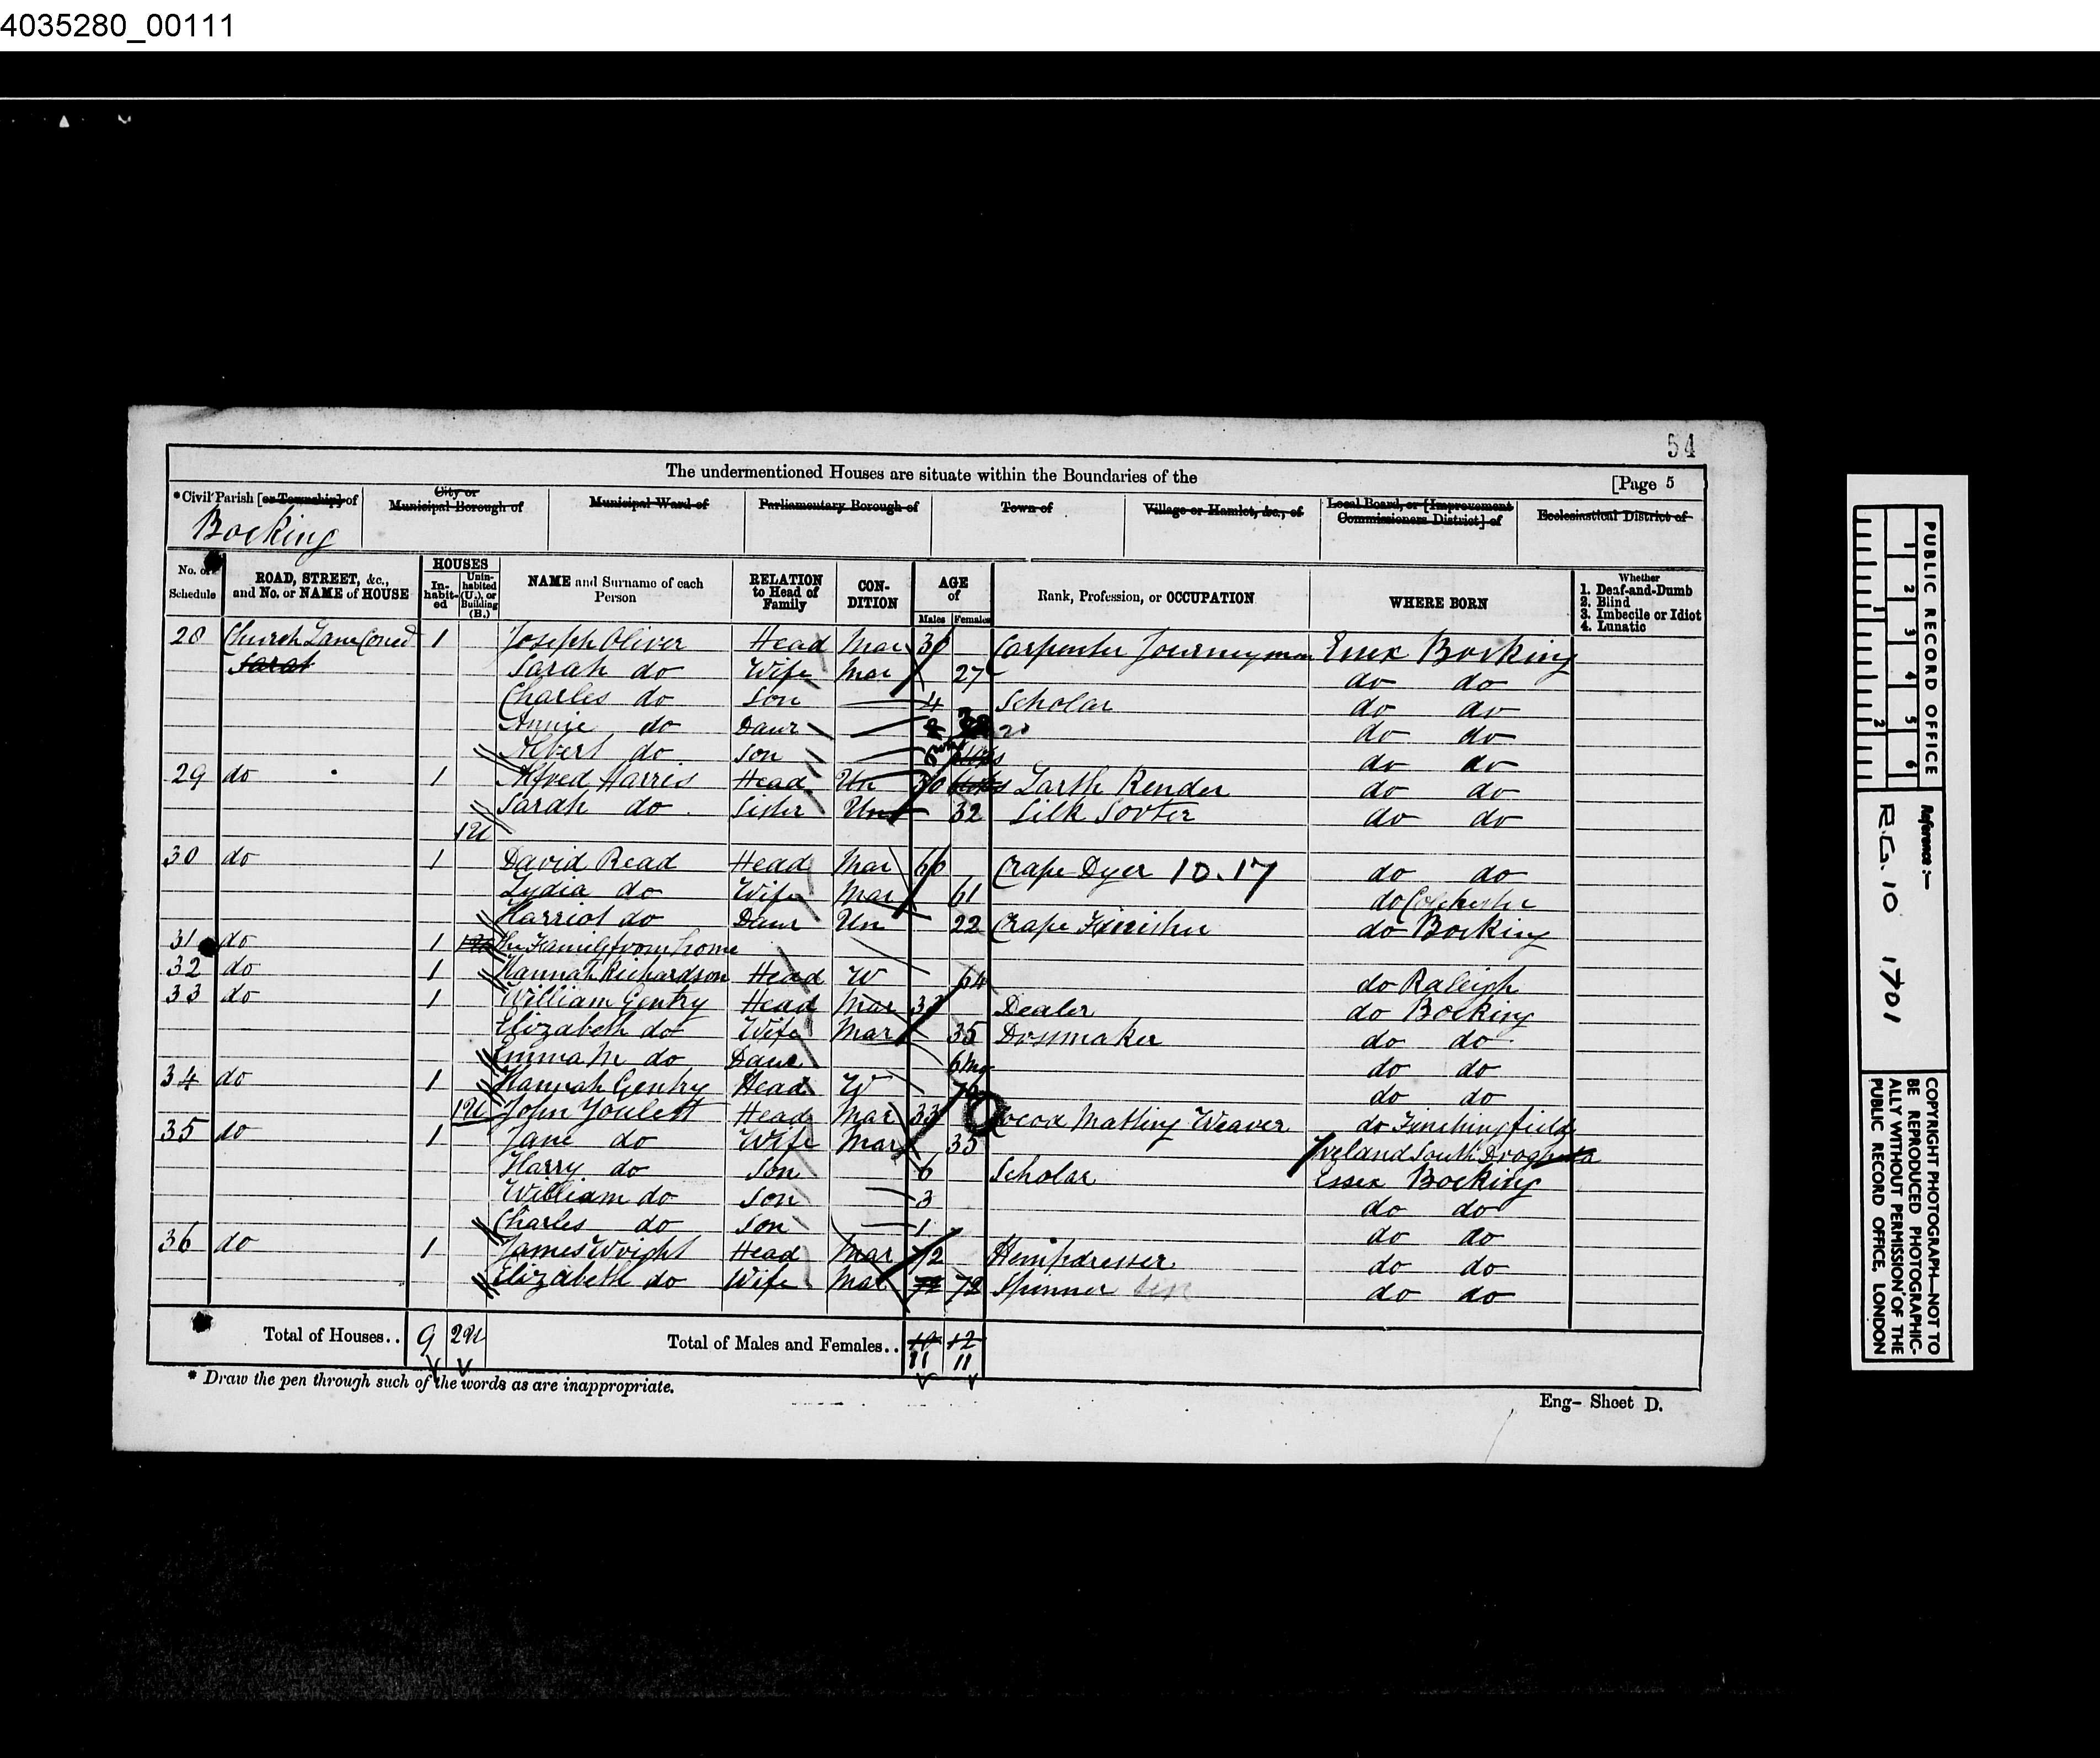 4035280_00111
54
The undermentioned Houses are situate within the Boundaries of the
[Page 5
*Civil Parish [or Township] of
City or Municipal Borough of
Municipal Ward of
Parliamentary Borough of
Town of
Village or Hamlet, &c., of
Local Board, or [Improvement Commissioners District] of
Ecclesiastical District of
Bocking
No. of Schedule
ROAD, STREET, &c., and No. or NAME of HOUSE
HOUSES
In-habit-ed
Unin-habited (U.), or Building (B.)
NAME and Surname of each Person
RELATION to Head of Family
CON-DITION
AGE of
Males Females
Rank, Profession, or OCCUPATION
WHERE BORN
Whether
1. Deaf-and-Dumb
2. Blind
3. Imbecile or Idiot
4. Lunatic
28 Church Lane 1 Joseph Oliver Head Mar 30 Carpenter Journeyman Essex Bocking
Sarah do Wife Mar 27 do do
Charles do Son 4 Scholar do do
Annie do Daur do do
Albert do Son do do
29 do 1 Alfred Harris Head Un 30 Render do do
Sarah do Sister Un 32 Silk Sorter do do
1U
30 do 1 David Read Head Mar 60 Crape Dyer 10.17 do do
Lydia do Wife Mar 61 do Colchester
Harriot do Daur Un 22 Crape Finisher do Bocking
31 do 1 Family from home
32 do 1 Hannah Richardson Head W 64 do Raleigh
33 do 1 William Gentry Head Mar Dealer do Bocking
Elizabeth do Wife Mar 35 Dressmaker do do
Emma M do Daur 6 Mo do do
34 do 1 Hannah Gentry Head W do do
1U John Youlett Head Mar 33 Cocoa Matting Weaver do Finchingfield
35 do 1 Jane do Wife Mar 35 Ireland South Drogheda
Harry do Son 6 Scholar Essex Bocking
William do Son 3 do do
Charles do Son 1 do do
36 do 1 James Wright Head Mar 72 Hempdresser do do
Elizabeth do Wife Mar 72 Spinner do do
Total of Houses.. 9 2U
Total of Males and Females.. 11 11
* Draw the pen through such of the words as are inappropriate.
Eng- Sheet D.
PUBLIC RECORD OFFICE
1 2 3 4 5 6
1 2
Reference:-
R.G. 10 1701
COPYRIGHT PHOTOGRAPH—NOT TO
BE REPRODUCED PHOTOGRAPHIC-
ALLY WITHOUT PERMISSION OF THE
PUBLIC RECORD OFFICE, LONDON